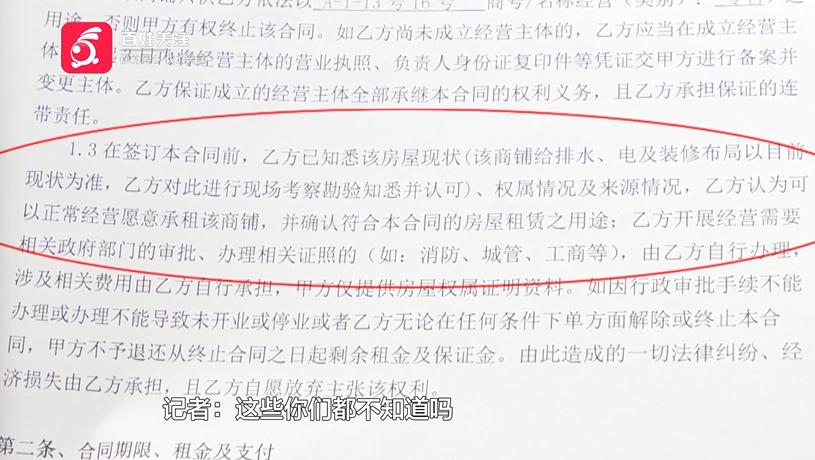 百姓关注
A-1-13号16号 商号/名称经营（类别）：
用途，否则甲方有权终止该合同。如乙方尚未成立经营主体的，乙方应当在成立经营主
体 3日内将经营主体的营业执照、负责人身份证复印件等凭证交甲方进行备案并
变更主体。乙方保证成立的经营主体全部承继本合同的权利义务，且乙方承担保证的连
带责任。
1.3在签订本合同前，乙方已知悉该房屋现状(该商铺给排水、电及装修布局以目前
现状为准，乙方对此进行现场考察勘验知悉并认可)、权属情况及来源情况，乙方认为可
以正常经营愿意承租该商铺，并确认符合本合同的房屋租赁之用途；乙方开展经营需要
相关政府部门的审批、办理相关证照的（如：消防、城管、工商等），由乙方自行办理，
涉及相关费用由乙方自行承担，甲方仅提供房屋权属证明资料。如因行政审批手续不能
办理或办理不能导致未开业或停业或者乙方无论在任何条件下单方面解除或终止本合
同，甲方不予退还从终止合同之日起剩余租金及保证金。由此造成的一切法律纠纷、经
济损失由乙方承担，且乙方自愿放弃主张该权利。
记者：这些你们都不知道吗
第二条、合同期限、租金及支付